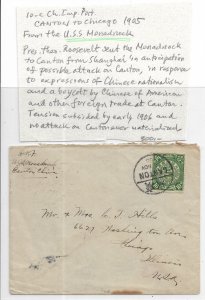 10-c Ch. Imp. Port.
CANTON to Chicago 1905
From the U.S.S. Monadnock
Pres. Theo. Roosevelt sent the Monadnock
to Canton from Shanghai in anticipation
of possible attack on Canton, in response
to expressions of Chinese nationalism
and a boycott by Chinese of American
and other foreign trade at Canton.
Tension subsided by early 1906 and
no attack on Canton ever materialized
CANTON
Canton China
Mr & Mrs C. F. Hills
6627 Washington Ave
Chicago
Illinois
U.S.A.